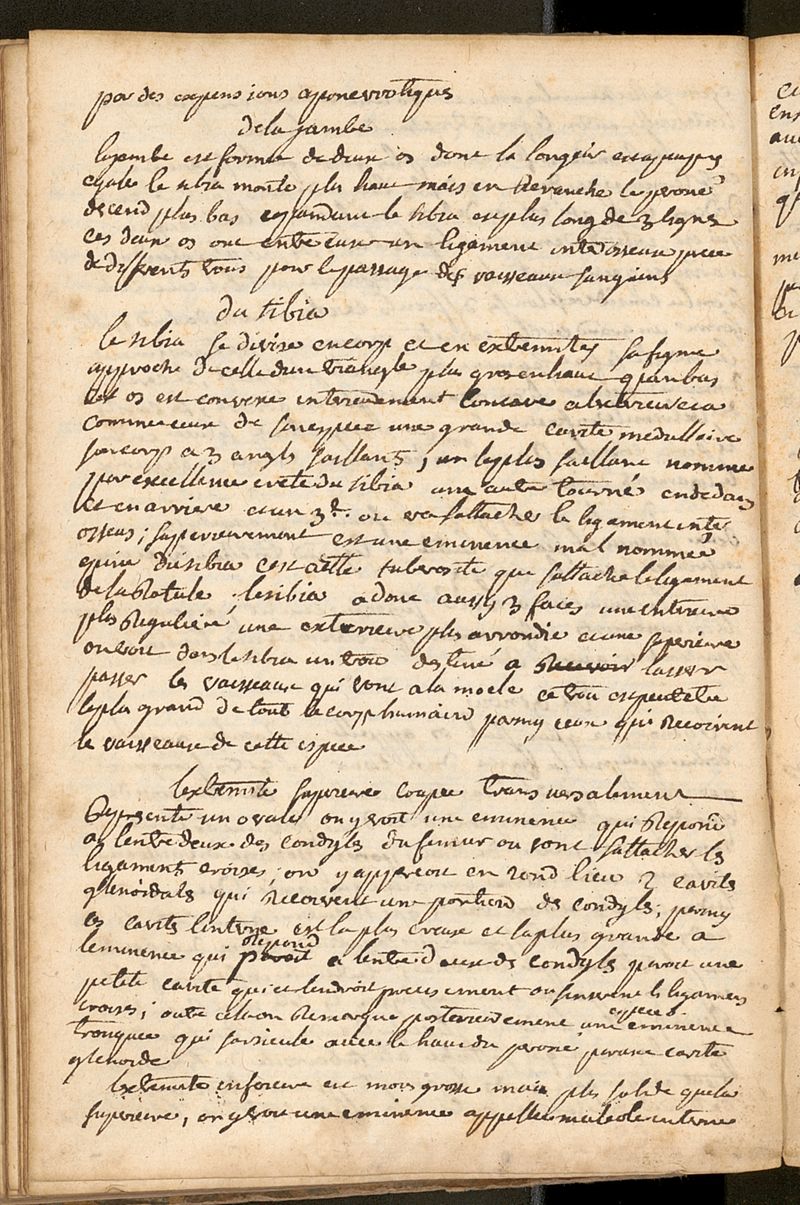 par des expensions aponevrotiques
de la jambe
la jambe est formée de deux os dont la longeur est a peu pres
egale le tibia monte plus haut mais en Revanche le peroné
descend plus bas cependant le tibia est plus long de 3 lignes
ces deux os ont entre eux un ligament interosseux percé
de differents trous pour le passage des vaisseaux sanguins
du tibia
le tibia se divise en corps et en extremites sa figure
approche de celle d'un triangle plus gros en haut qu'en bas
cet os est convexe interieurement concave a l'exterieur
comme ceux de son espece une grande cavité medullaire
son corps a 3 angls saillants, un le plus saillant nommé
par excellence crete du tibia une autre tourné en dedans
et en arriere et un 3e. ou va s'attacher le ligament inte
osseux; superieurement est une eminence mal nommée
epine du tibia c'est a cette tuberosite que s'attache le ligament
de la Rotule, le tibia a donc aussy 3 faces une interieure
plus Reguliere, une exterieure plus arrondie et une superieure
on voit dans le tibia un trou destiné a Recevoir laisser
passer les vaisseaux qui vont a la moele ce trou est peut etre
le plus grand de tout le corps humain parmy ceux qui Recoivent
le vaisseaux de cette espece
l'extremité superieure coupée transversalement
Represente un ovale on y voit une eminence qui Repond
a l'entre deux des condyls du femur ou vont s'attacher les
ligaments croises, on y appercoit en second lieu 2 cavites
glenoidals qui Recoivent une portion des condyls, parmy
ces cavits l'interne est la plus creuse et la plus grande a
l'eminence qui Repond a l'entre deux des condyls paroit une
petite cavite qui est l'endroit precisement ou s'inserent les ligamens
croises; outre cela on Remarque posterieurement une espece d'eminence
tronquée qui s'articule avec le haut du peroné par une cavite
glenoide
l'extremité inferieure est moins grosse mais plus solide que la
superieure, on y voit une eminence appellée maleole interne